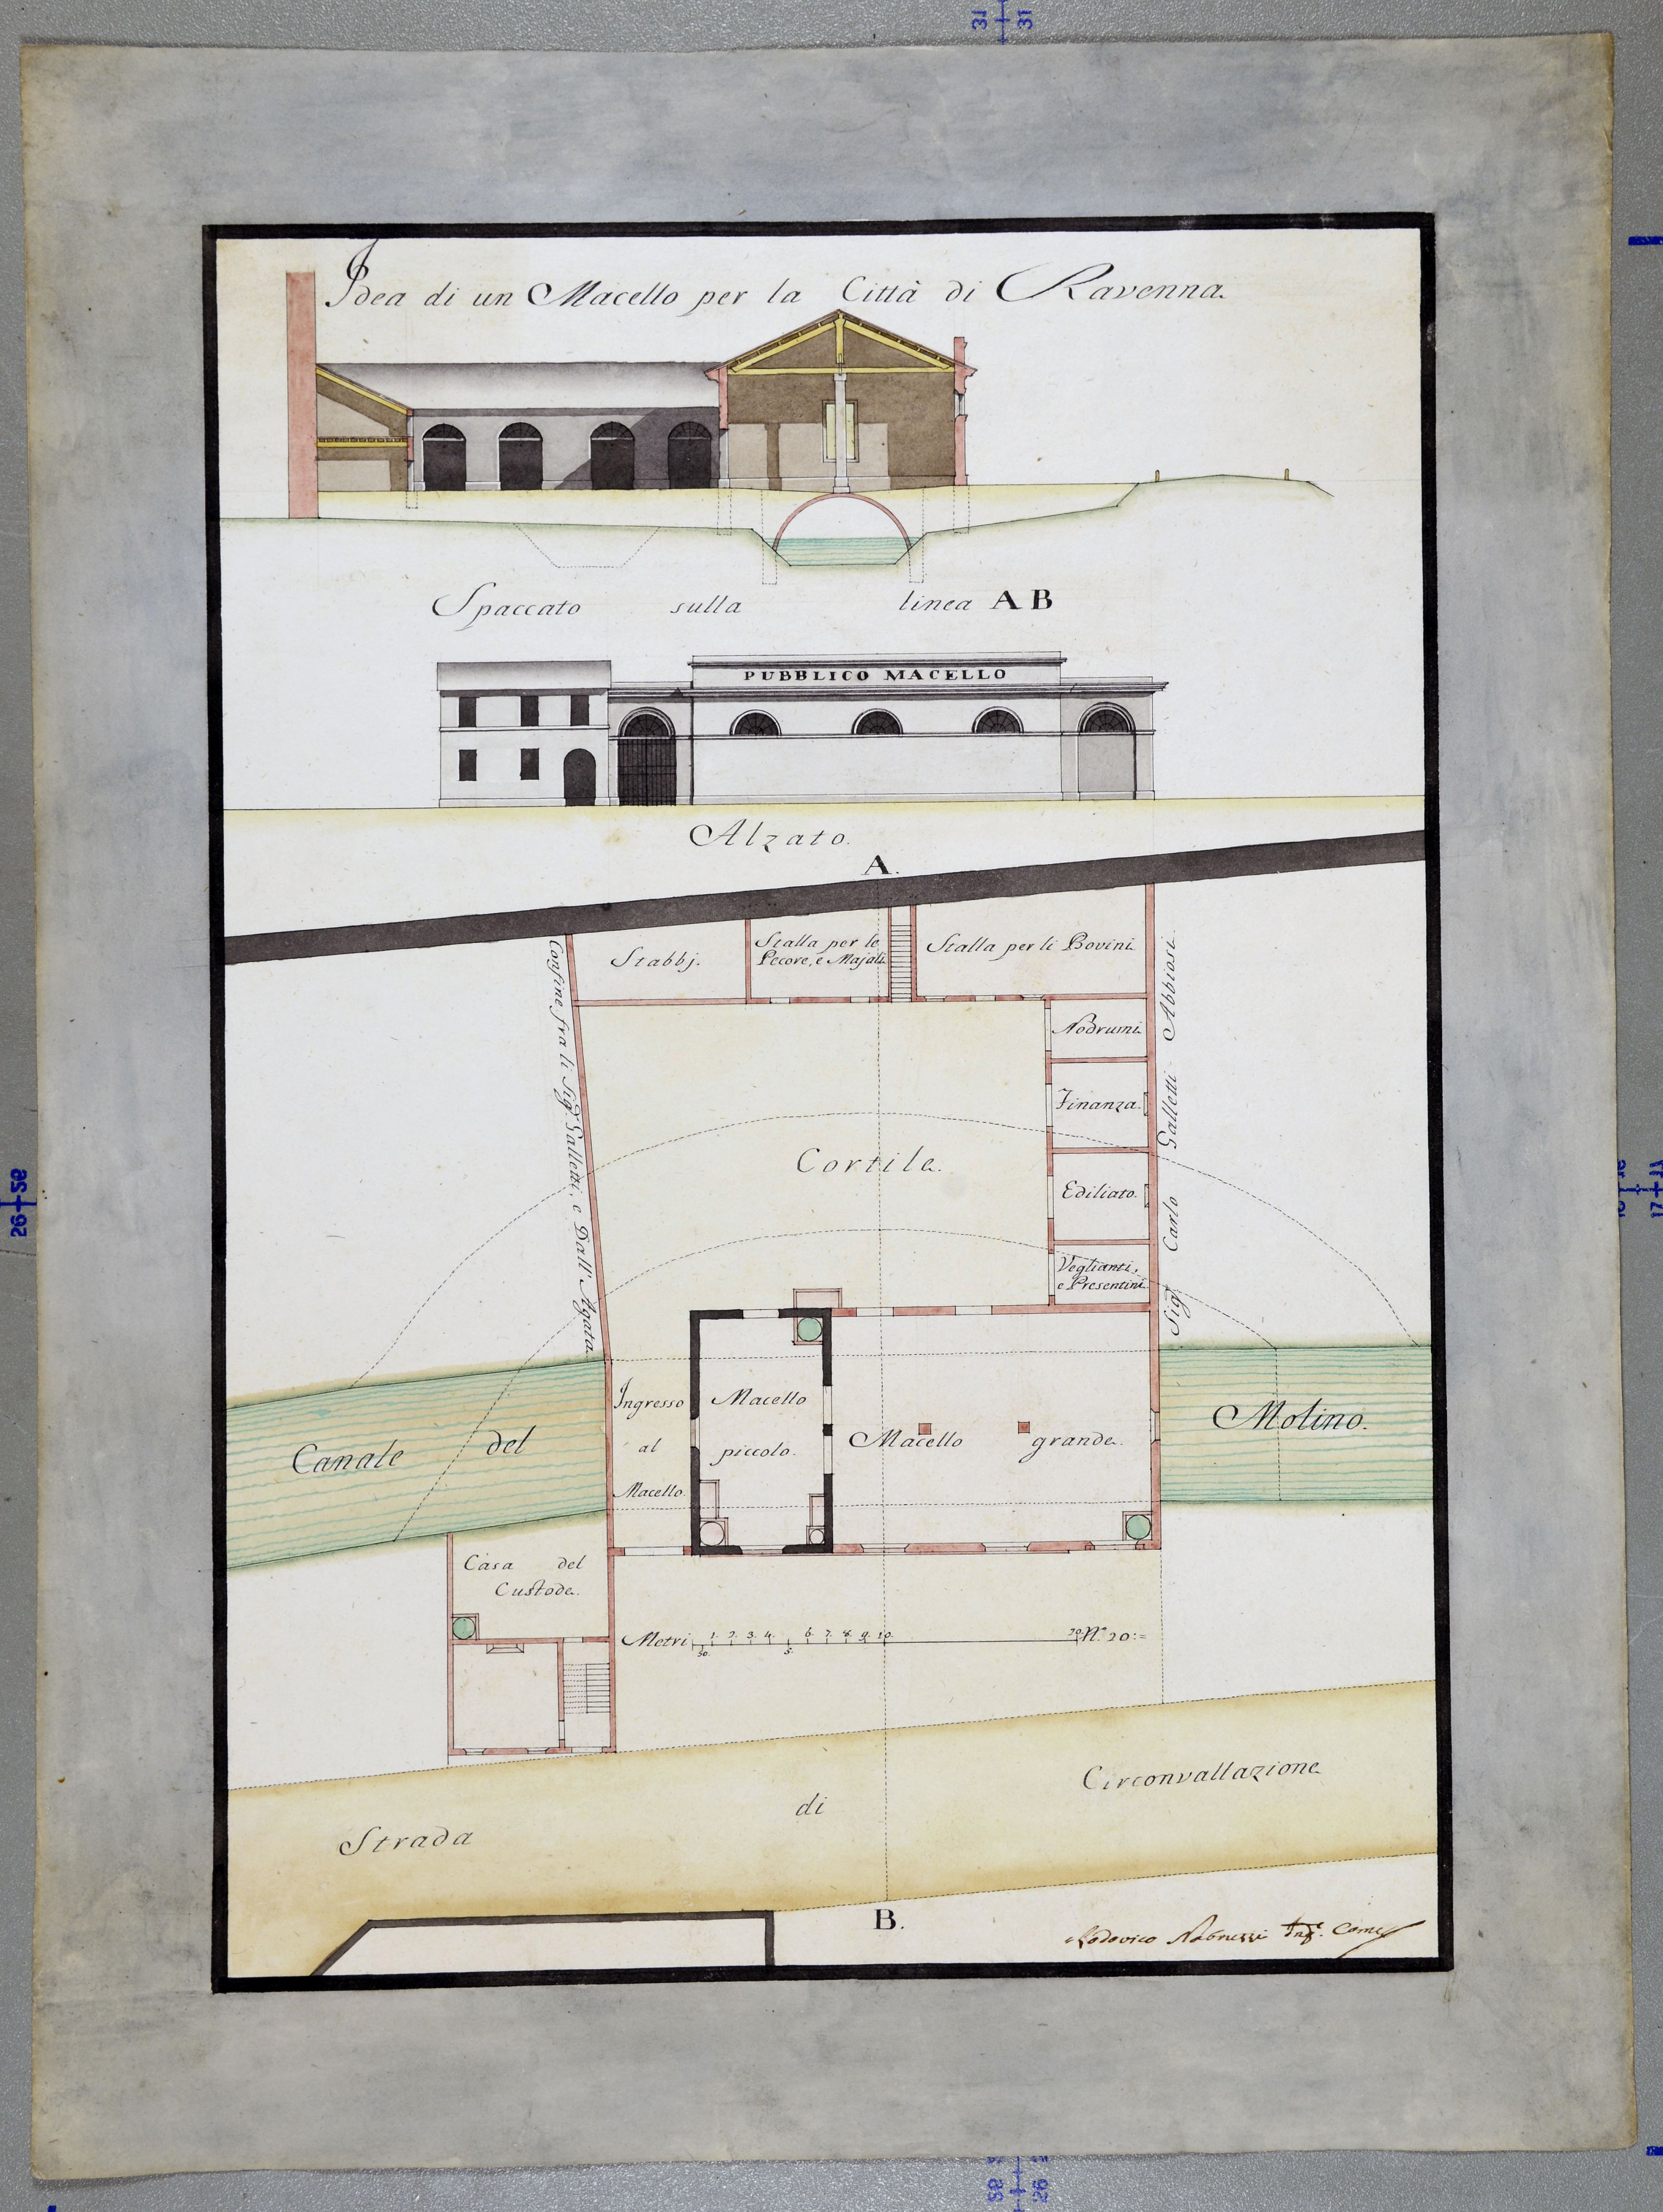 Idea di un Macello per la Città di Ravenna.
Spaccato sulla linea A B
PUBBLICO MACELLO
Alzato.
A.
Stabbj.
Stalla per le
Pecore, e Majali.
Stalla per li Bovini.
Confine fra li Sig.ri Galletti, e Dall' Agata.
Sig.r Carlo Galletti Abbiosi.
Nodrumi.
Finanza.
Cortile.
Ediliato.
Veglianti,
e Presentini.
Ingresso
al
Macello.
Macello
piccolo.
Macello grande.
Canale del Molino.
Casa del
Custode.
Metri 1. 2. 3. 4. 6. 7. 8. 9. 10. 20. N.° 20:=
50. 5.
Strada di Circonvallazione
B.
Lodovico Nabruzzi Ing.e